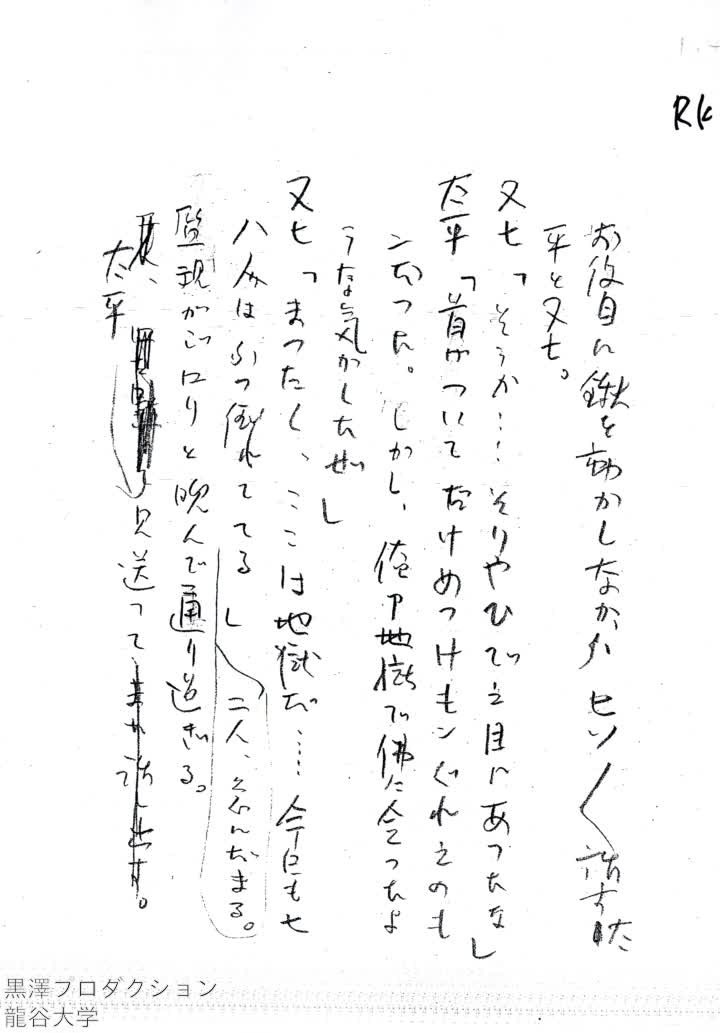 Rk
お役目に鍬を動かしながらヒソ〳〵話す太
平と又七。
又七「そうか…そりやひでえ目にあつたな」
太平「首がついてだけめつけもンぐれえのも
ンだつた。しかし、俺ア地獄で佛に会つたよ
うな気がしたぜ」
又七「まつたく、ここは地獄だ…今日も七
八人はぶつ倒れてる」
二人、だまる。
監視がジロリと睨んで通り過ぎる。
太平
見送つてまた話し出す。
黒澤プロダクション
龍谷大学